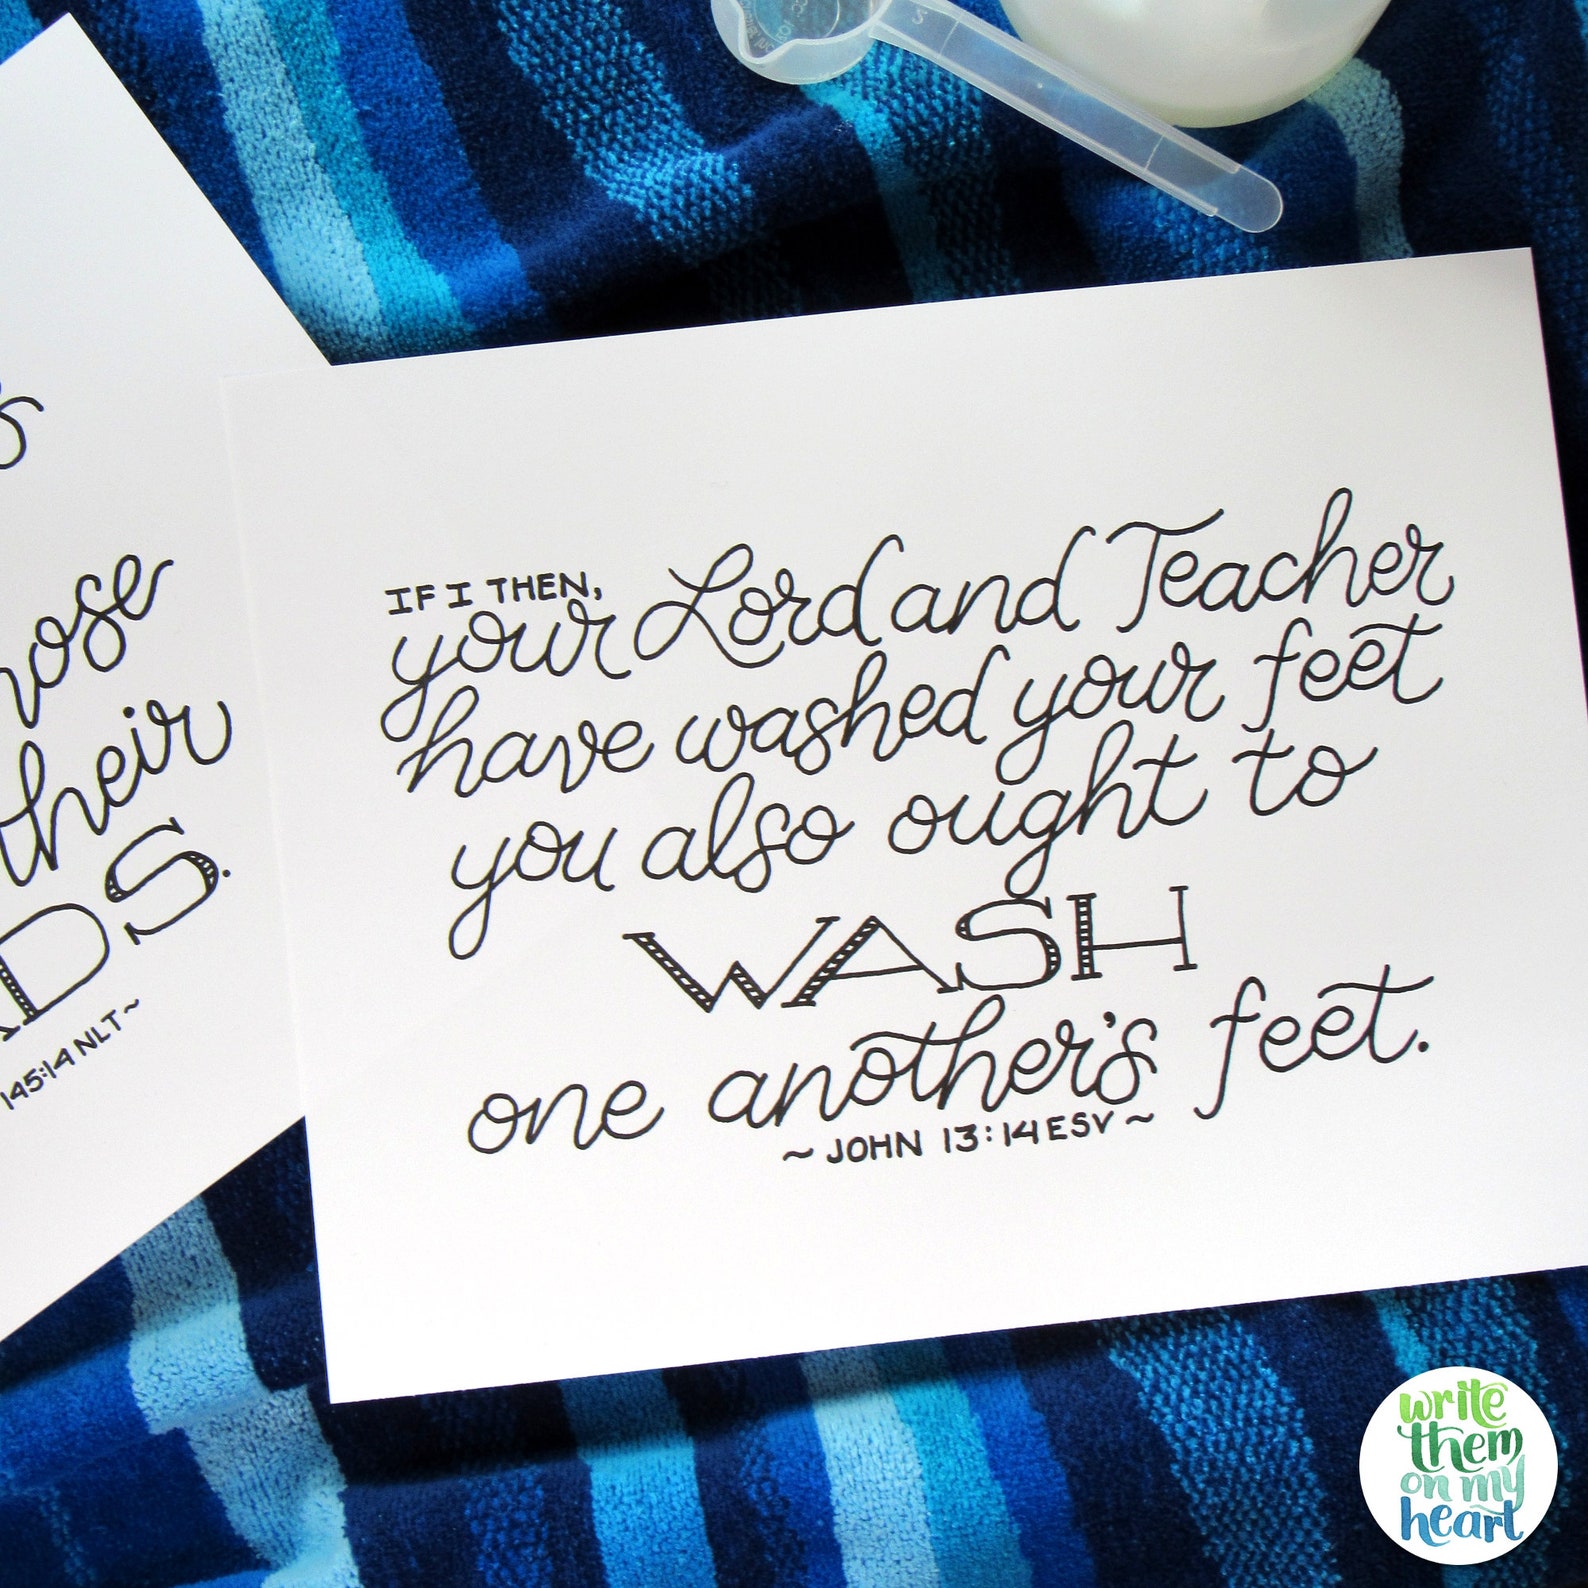 IF I THEN,
your Lord and Teacher
have washed your feet
you also ought to
WASH
one another's feet.
~JOHN 13:14 ESV~
their
DS.
145:14 NLT~
write
them
on my
heart